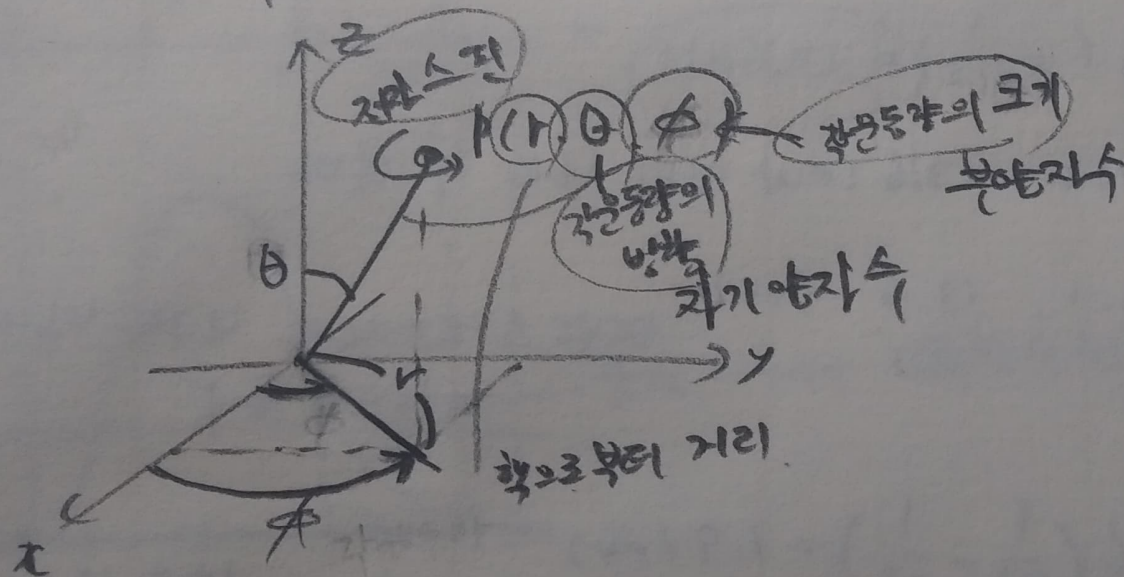 z
전자 스핀
P(r, θ, φ)
각운동량의 크기
부양자수
각운동량의
방향
자기 양자수
θ
r
y
φ
핵으로부터 거리.
φ
x